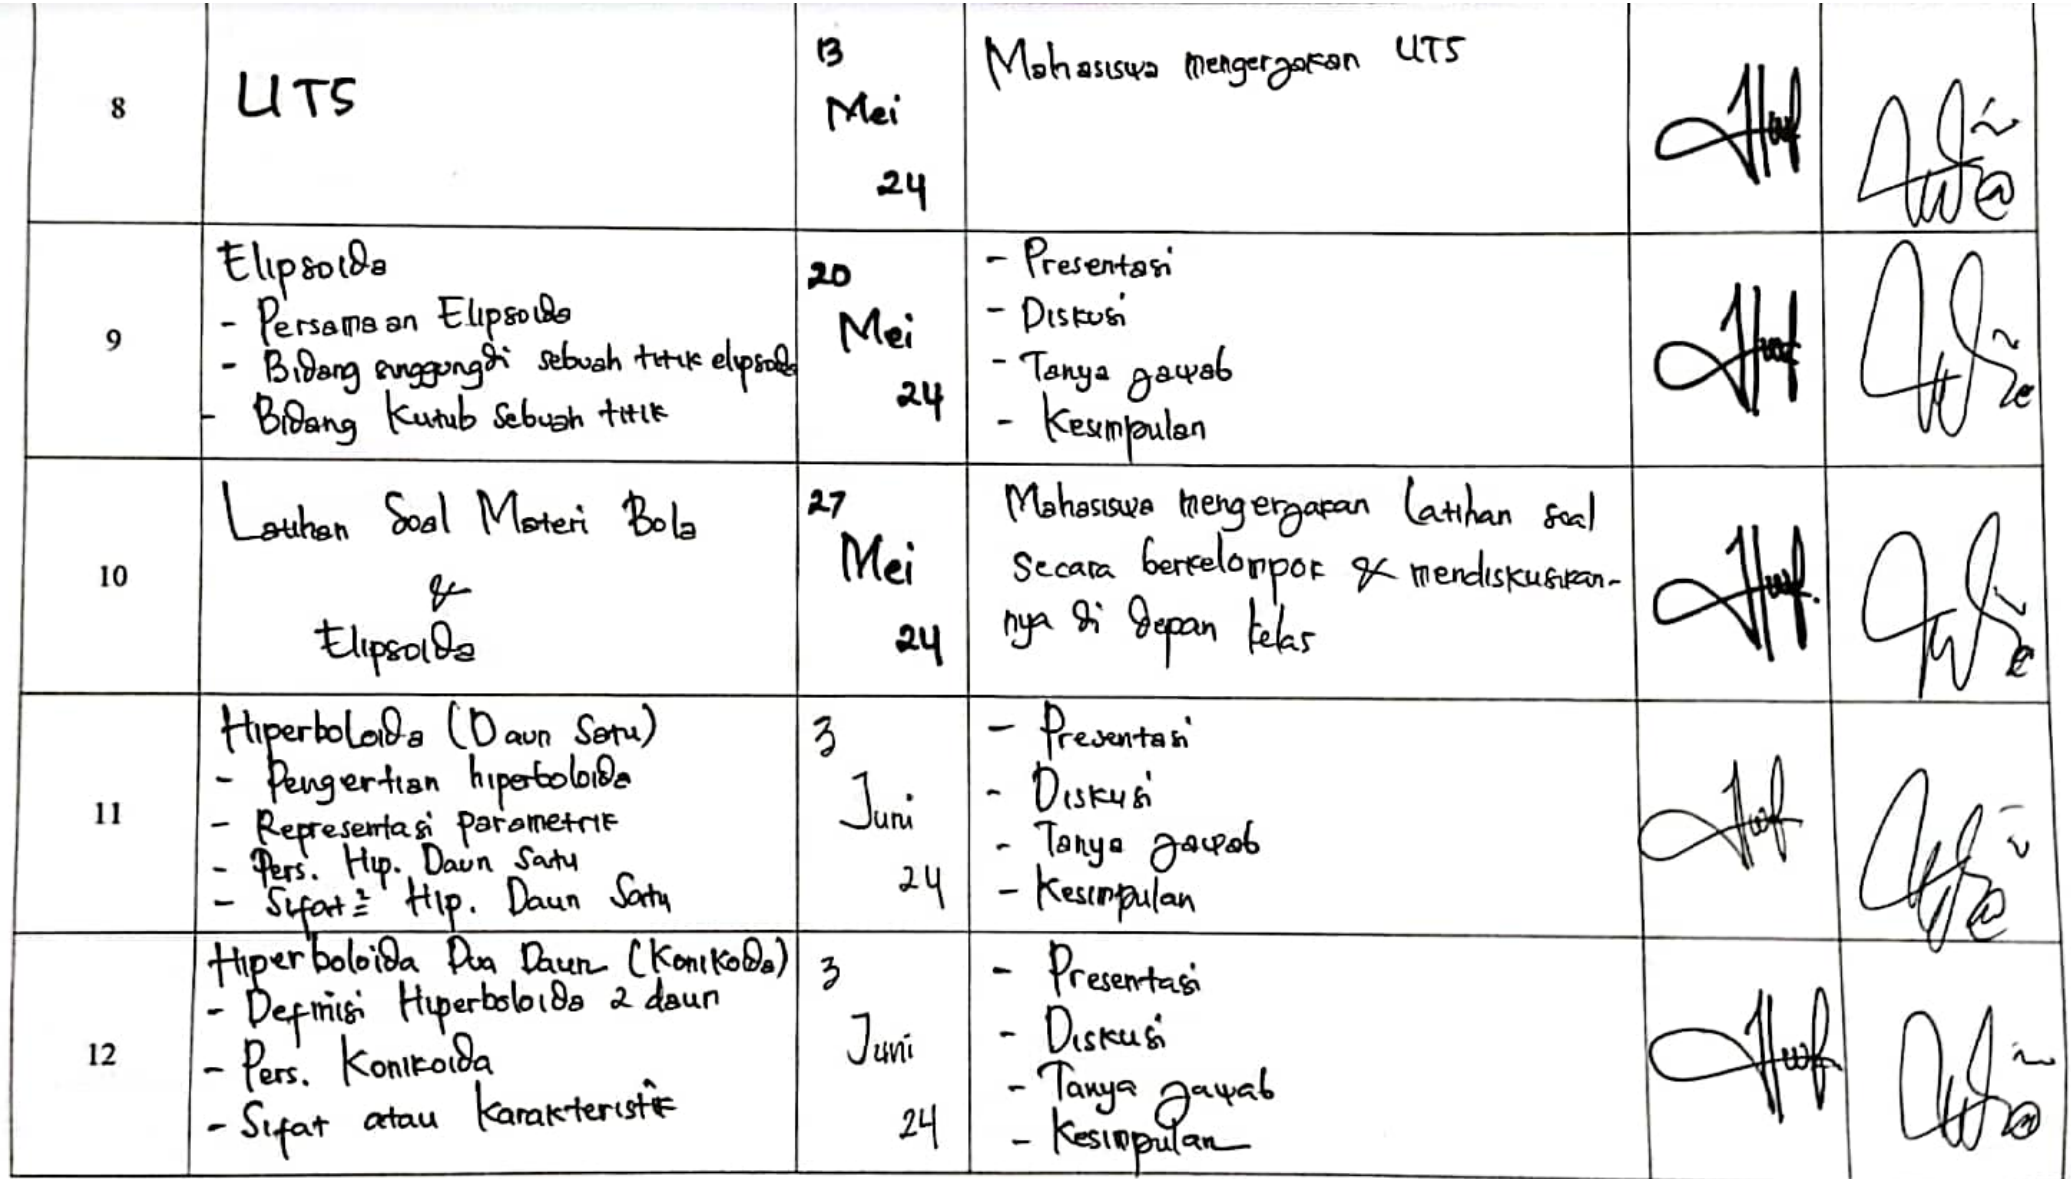 8
UTS
13
Mei
24
Mahasiswa mengerjakan UTS
9
Elipsoida
- Persamaan Elipsoida
- Bidang singgung di sebuah titik elipsoida
- Bidang Kutub sebuah titik
20
Mei
24
- Presentasi
- Diskusi
- Tanya jawab
- Kesimpulan
10
Latihan Soal Materi Bola
&
Elipsoida
27
Mei
24
Mahasiswa mengerjakan latihan soal
secara berkelompok & mendiskusikan-
nya di depan kelas
11
Hiperboloida (Daun Satu)
- Pengertian hiperboloida
- Representasi parametrik
- Pers. Hip. Daun Satu
- Sifat² Hip. Daun Satu
3
Juni
24
- Presentasi
- Diskusi
- Tanya jawab
- Kesimpulan
12
Hiperboloida Dua Daun (Konikoda)
- Definisi Hiperboloida 2 daun
- Pers. Konikoida
- Sifat atau karakteristik
3
Juni
24
- Presentasi
- Diskusi
- Tanya jawab
- Kesimpulan